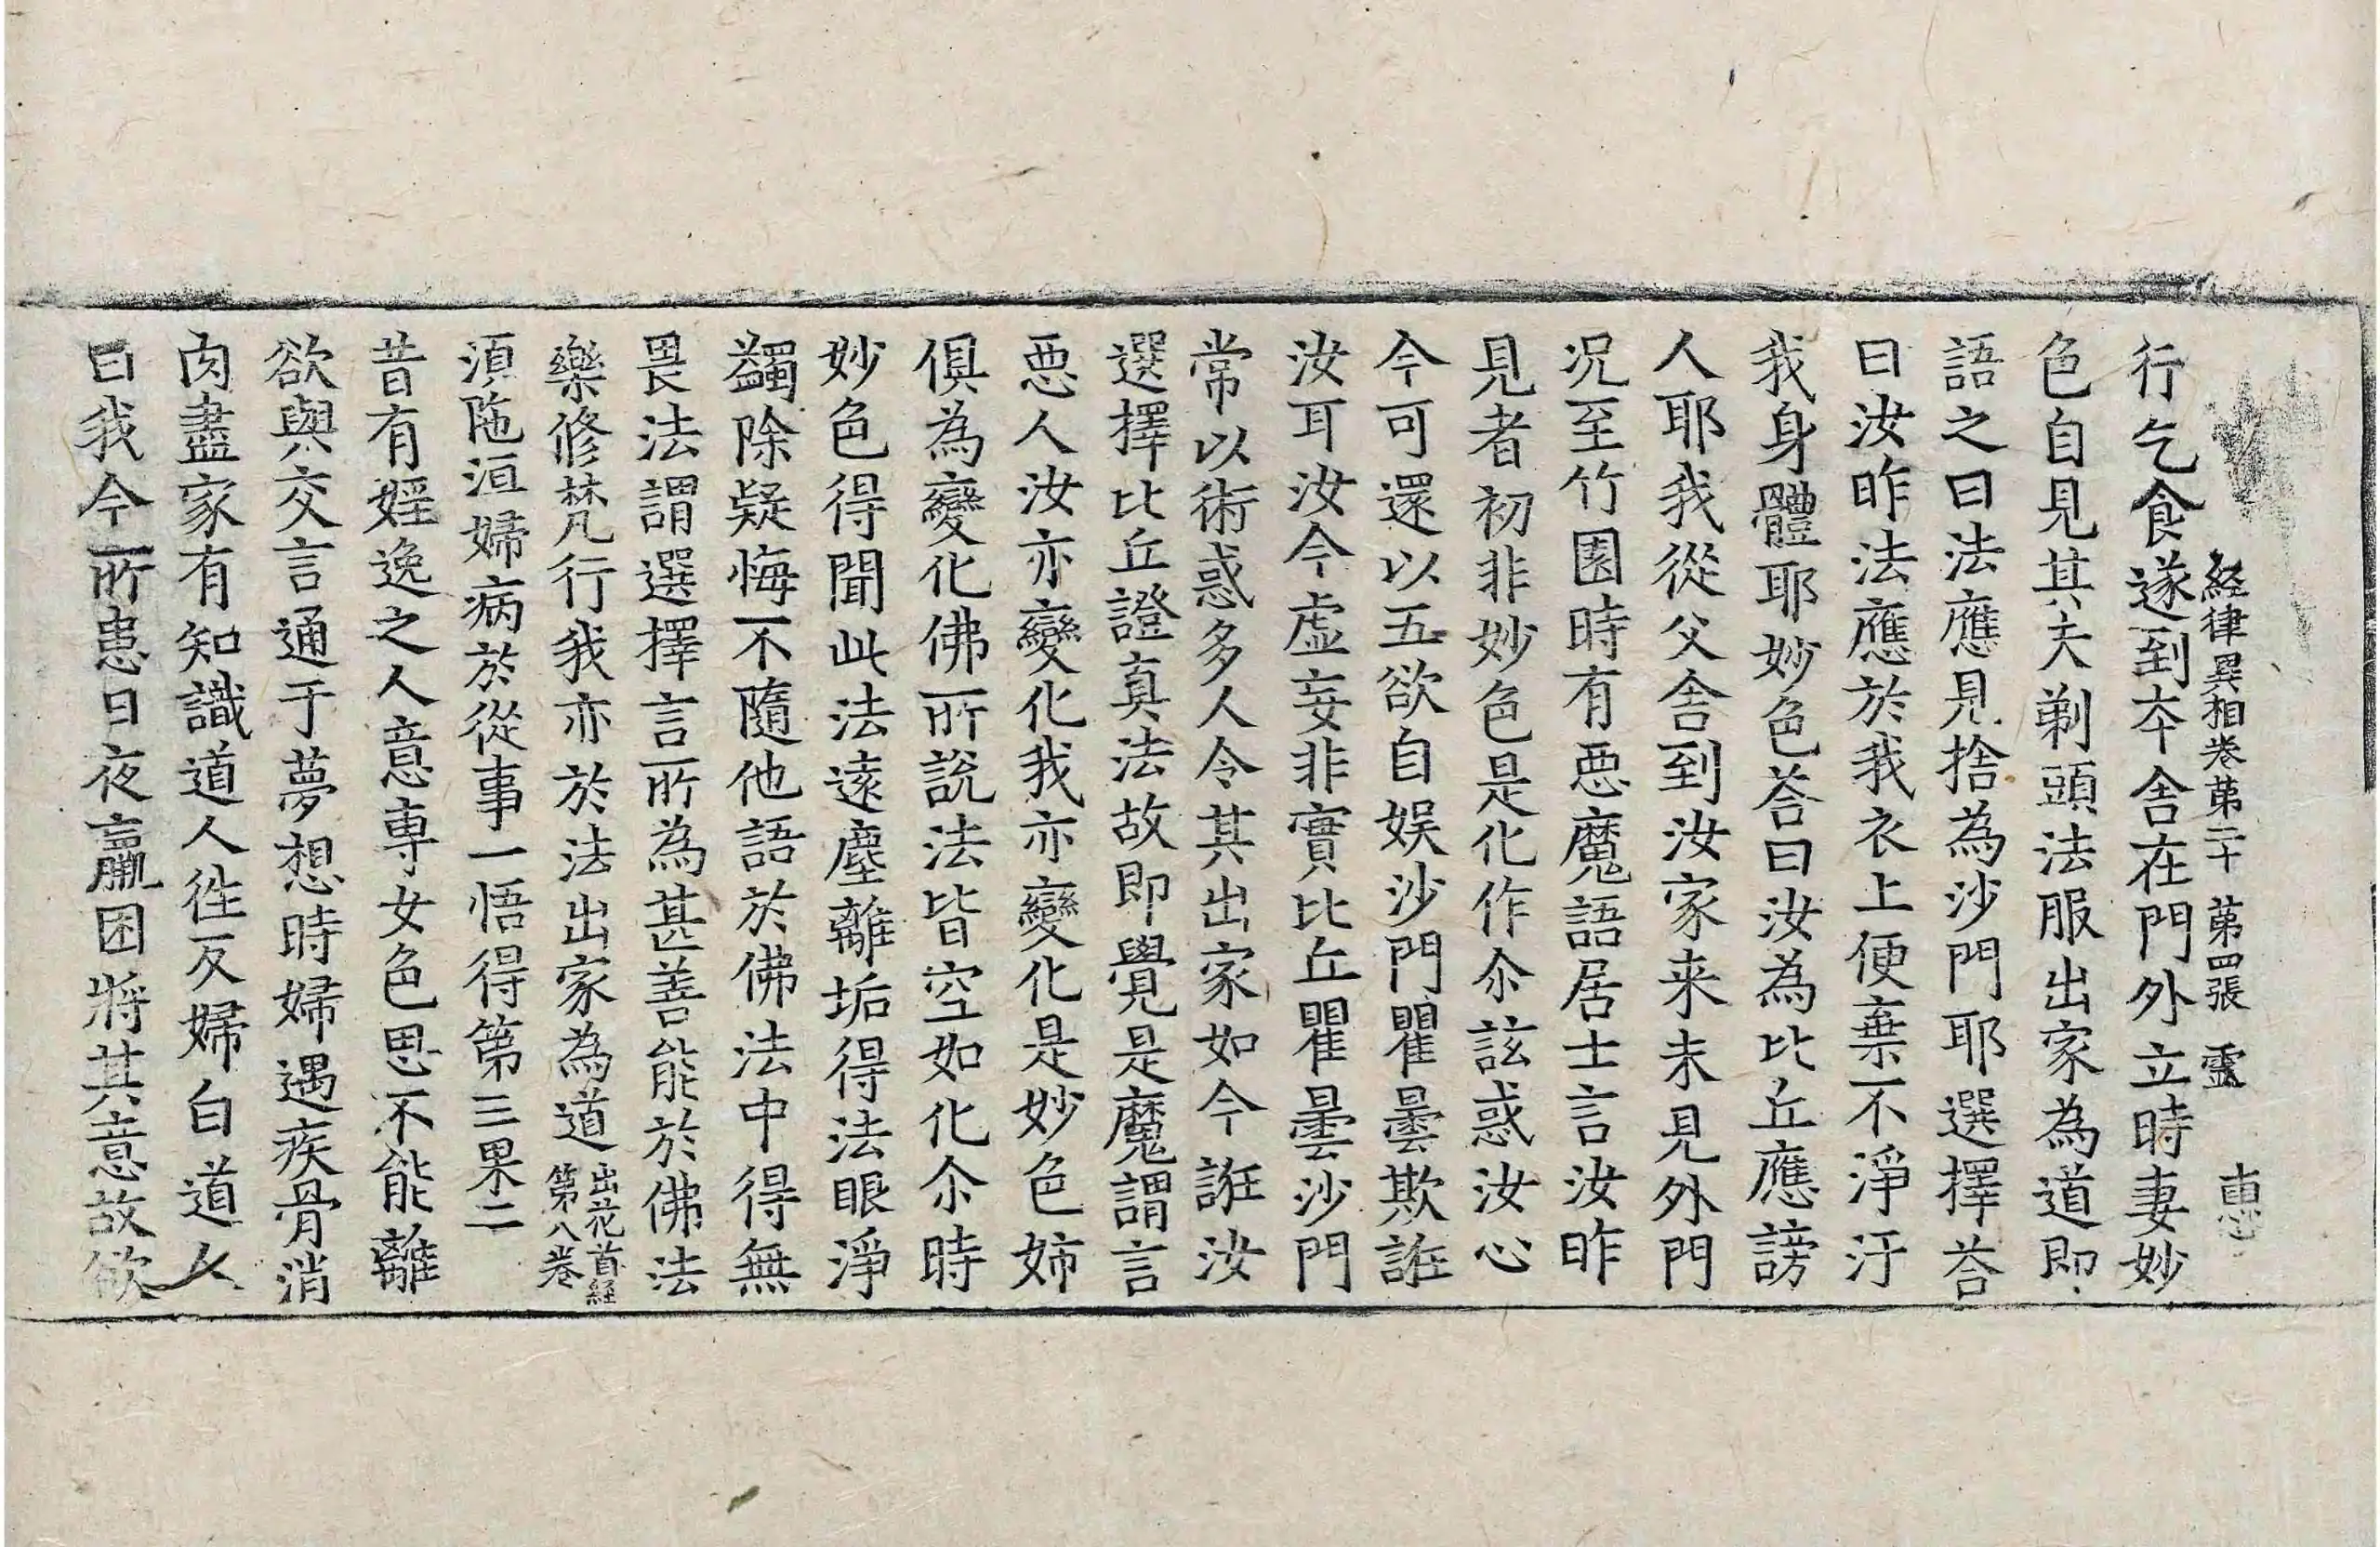 経律異相卷苐二十 苐四張 靈 惠
行乞食遂到夲舍在門外立時妻妙
色自見其夫剃頭法服出家為道即
語之曰法應見捨為沙門耶選擇荅
曰汝昨法應於我衣上便棄不淨汙
我身體耶妙色荅曰汝為比丘應謗
人耶我從父舍到汝家来未見外門
况至竹園時有惡魔語居士言汝昨
見者初非妙色是化作尒該惑汝心
今可還以五欲自娱沙門瞿曇欺誑
汝耳汝今虛妄非實比丘瞿曇沙門
常以術惑多人令其出家如今誑汝
選擇比丘證真法故即覺是魔謂言
惡人汝亦變化我亦變化是妙色姉
俱為變化佛所說法皆空如化尒時
妙色得聞此法遠塵離垢得法眼淨
蠲除疑悔不隨他語於佛法中得無
畏法謂選擇言所為甚善能於佛法
樂修梵行我亦於法出家為道出花首經第八卷
湏陁洹婦病於從事一悟得第三果二
昔有婬逸之人意専女色思不能離
欲與交言通于夢想時婦遇疾骨消
肉盡家有知識道人徃反婦白道人
曰我今所患日夜羸困將其意故欲